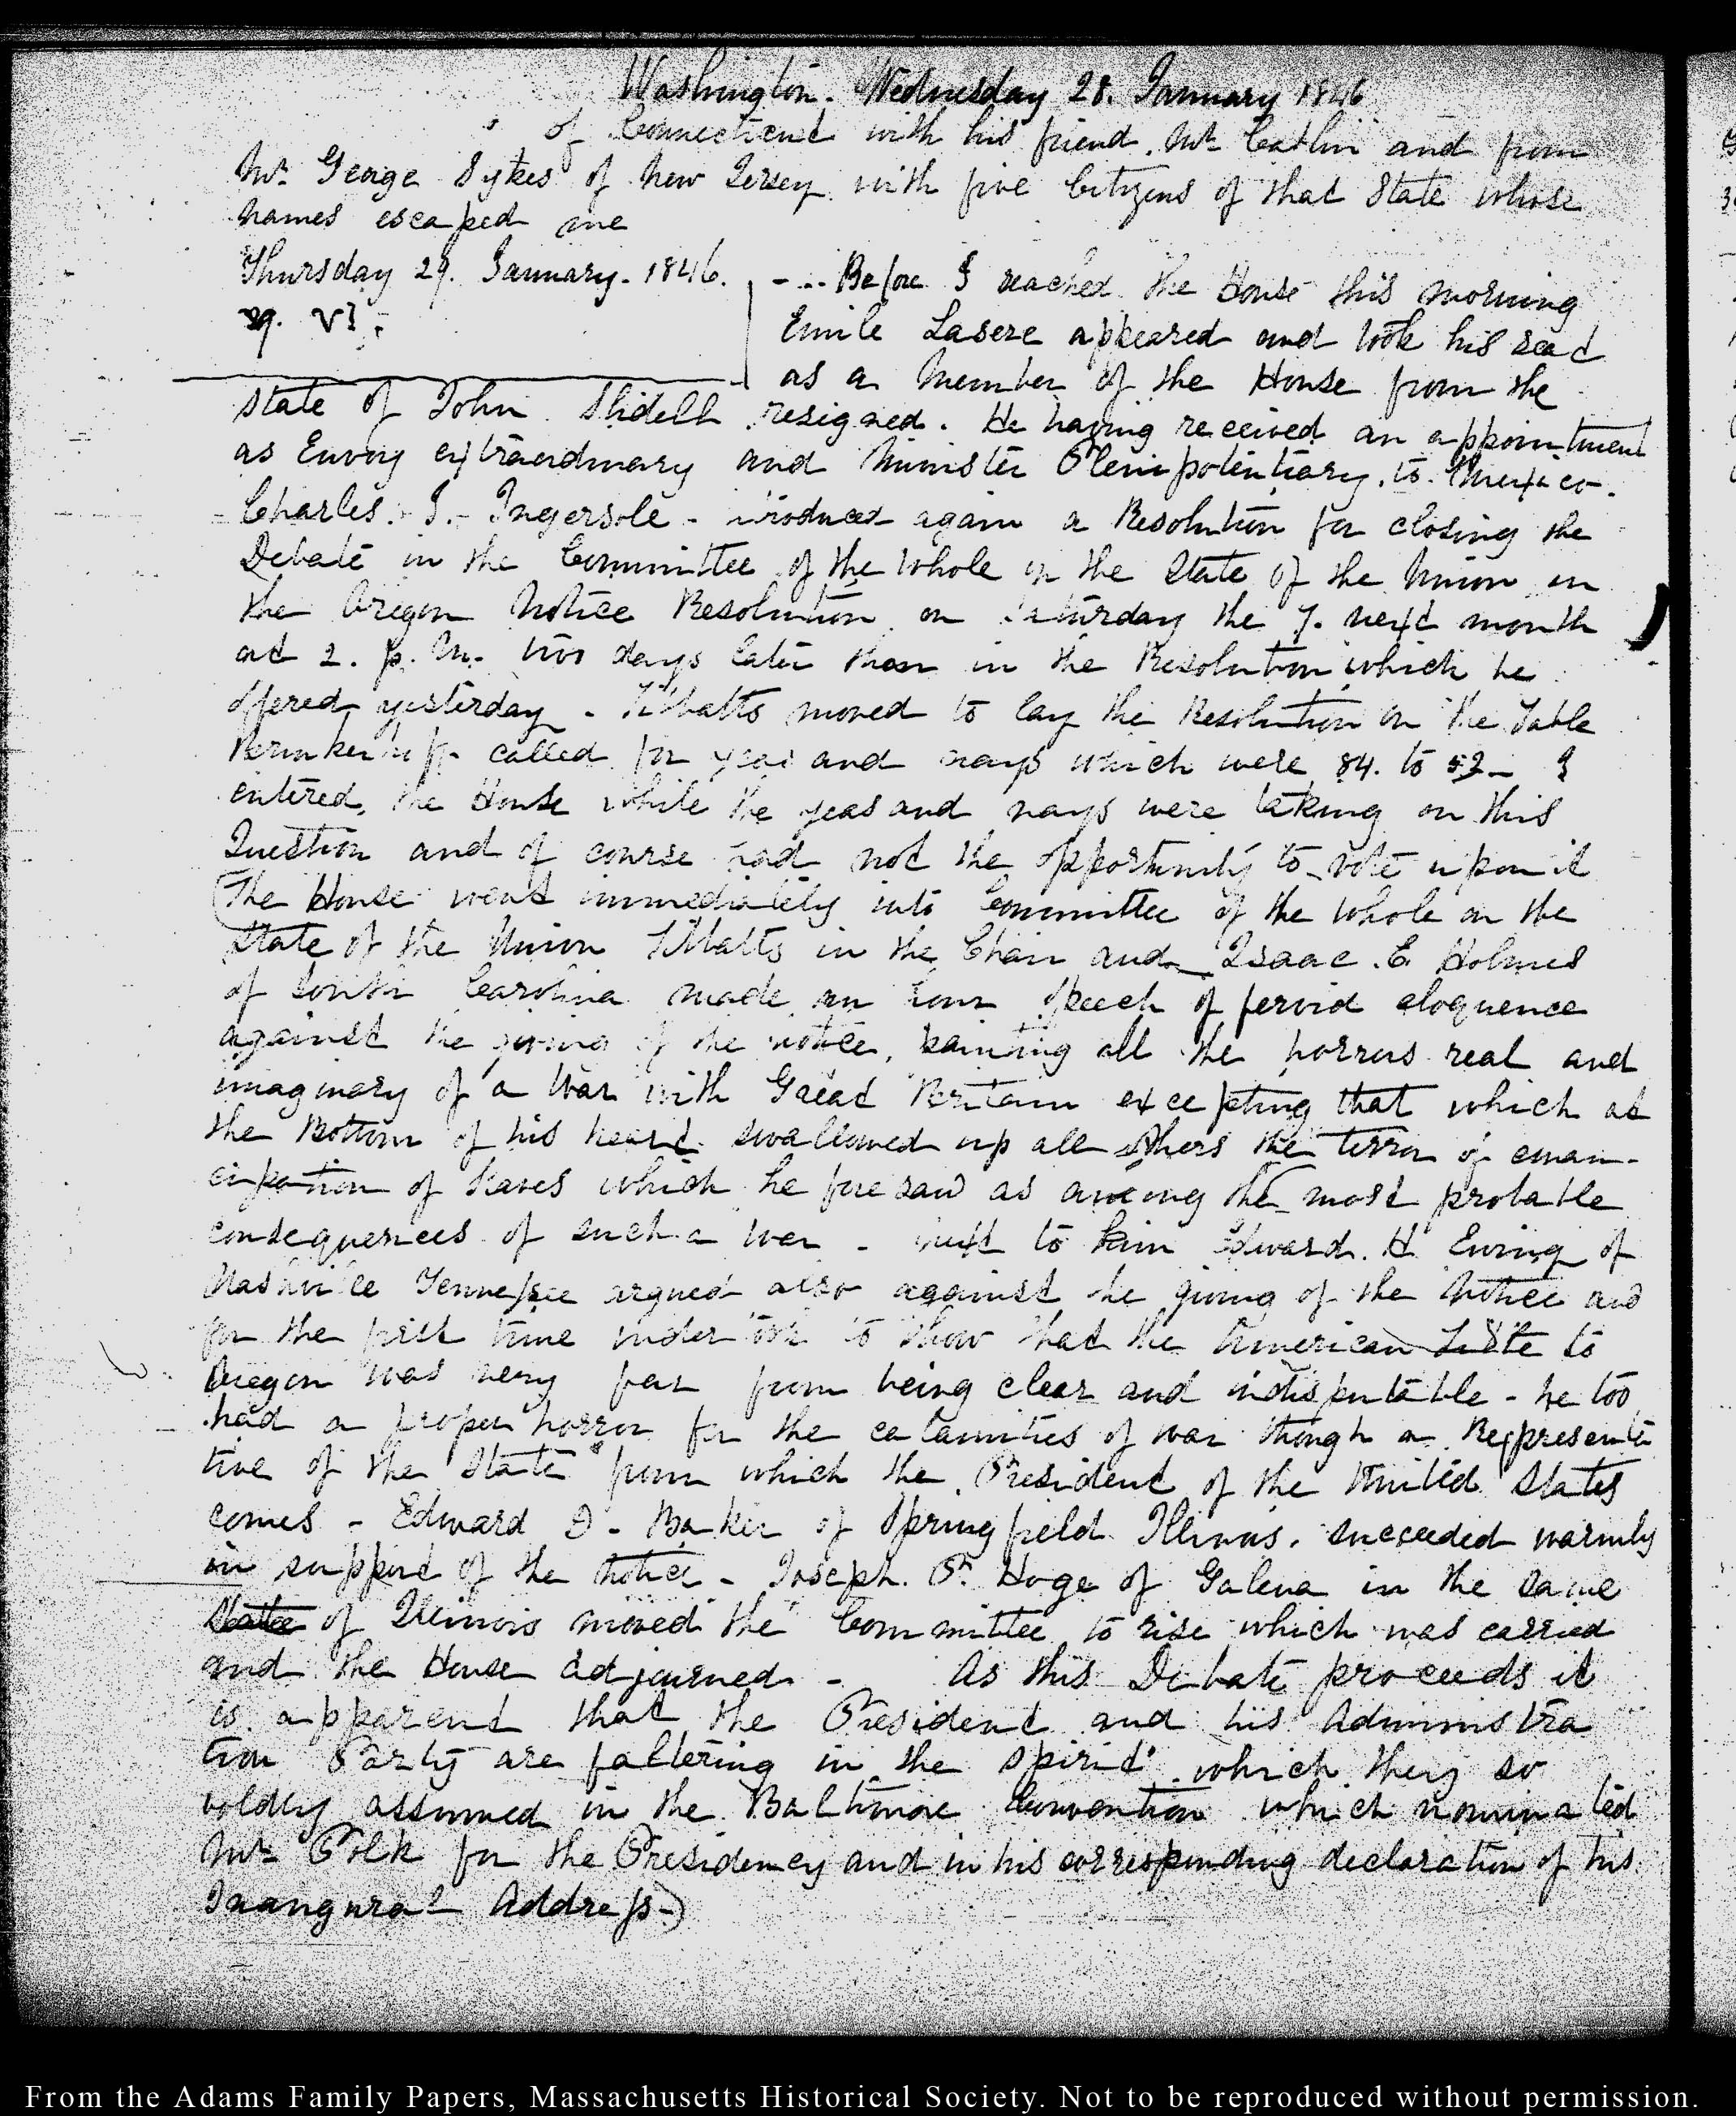 Washington. Wednesday 28. January 1846
of Connecticut with his friend. Mr Catlin and from
Mr George Sykes of New Jersey with five Citizens of that State whose
names escaped me
Thursday 29. January. 1846.
29. VI.
- ... Before I reached the House this morning
Emile Lasere appeared and took his seat
as a Member of the House from the
state of John Slidell resigned. He having received an appointment
as Envoy extraordinary and Minister Plenipotentiary to Mexico.
Charles. J. Ingersole - introduced again a Resolution for closing the
Debate in the Committee of the whole on the State of the Union on
the Oregon Notice Resolution on Saturday the 7. next month
at 2. p. m. two days later than in the Resolution which he
offered yesterday - Tibbatts moved to lay the Resolution on the Table
Brinkerhoff called for yeas and nays which were 84. to 52 - I
entered the House while the yeas and nays were taking on this
Question and of course had not the opportunity to vote upon it
(The House went immediately into Committee of the whole on the
State of the Union Tibbatts in the Chair and Isaac. E Holmes
of South Carolina made an hour speech of fervid eloquence
against the giving of the notice, painting all the horrors real and
imaginary of a War with Great Britain excepting that which at
the Bottom of his heart swallowed up all others the terror of eman-
cipation of slaves which he foresaw as among the most probable
consequences of such a war - next to him Edward. H Ewing of
Nashville Tennessee argued also against the giving of the Notice and
for the first time undertook to show that the American Title to
Oregon was very far from being clear and indisputable - he too
had a proper horror for the calamities of war though a Representa
tive of the State from which the President of the United States
comes - Edward D - Baker of Springfield Illinois. succeeded warmly
in support of the notice - Joseph. P. Hoge of Galena in the same
State of Illinois moved the Committee to rise which was carried
and the House adjourned - As this Debate proceeds it
is apparent that the President and his Administra
tion Party are faltering in the spirit which they so
boldly assumed in the Baltimore Convention which nominated
Mr Polk for the Presidency and in his corresponding declaration of his
Inaugural Address -)
From the Adams Family Papers, Massachusetts Historical Society. Not to be reproduced without permission.